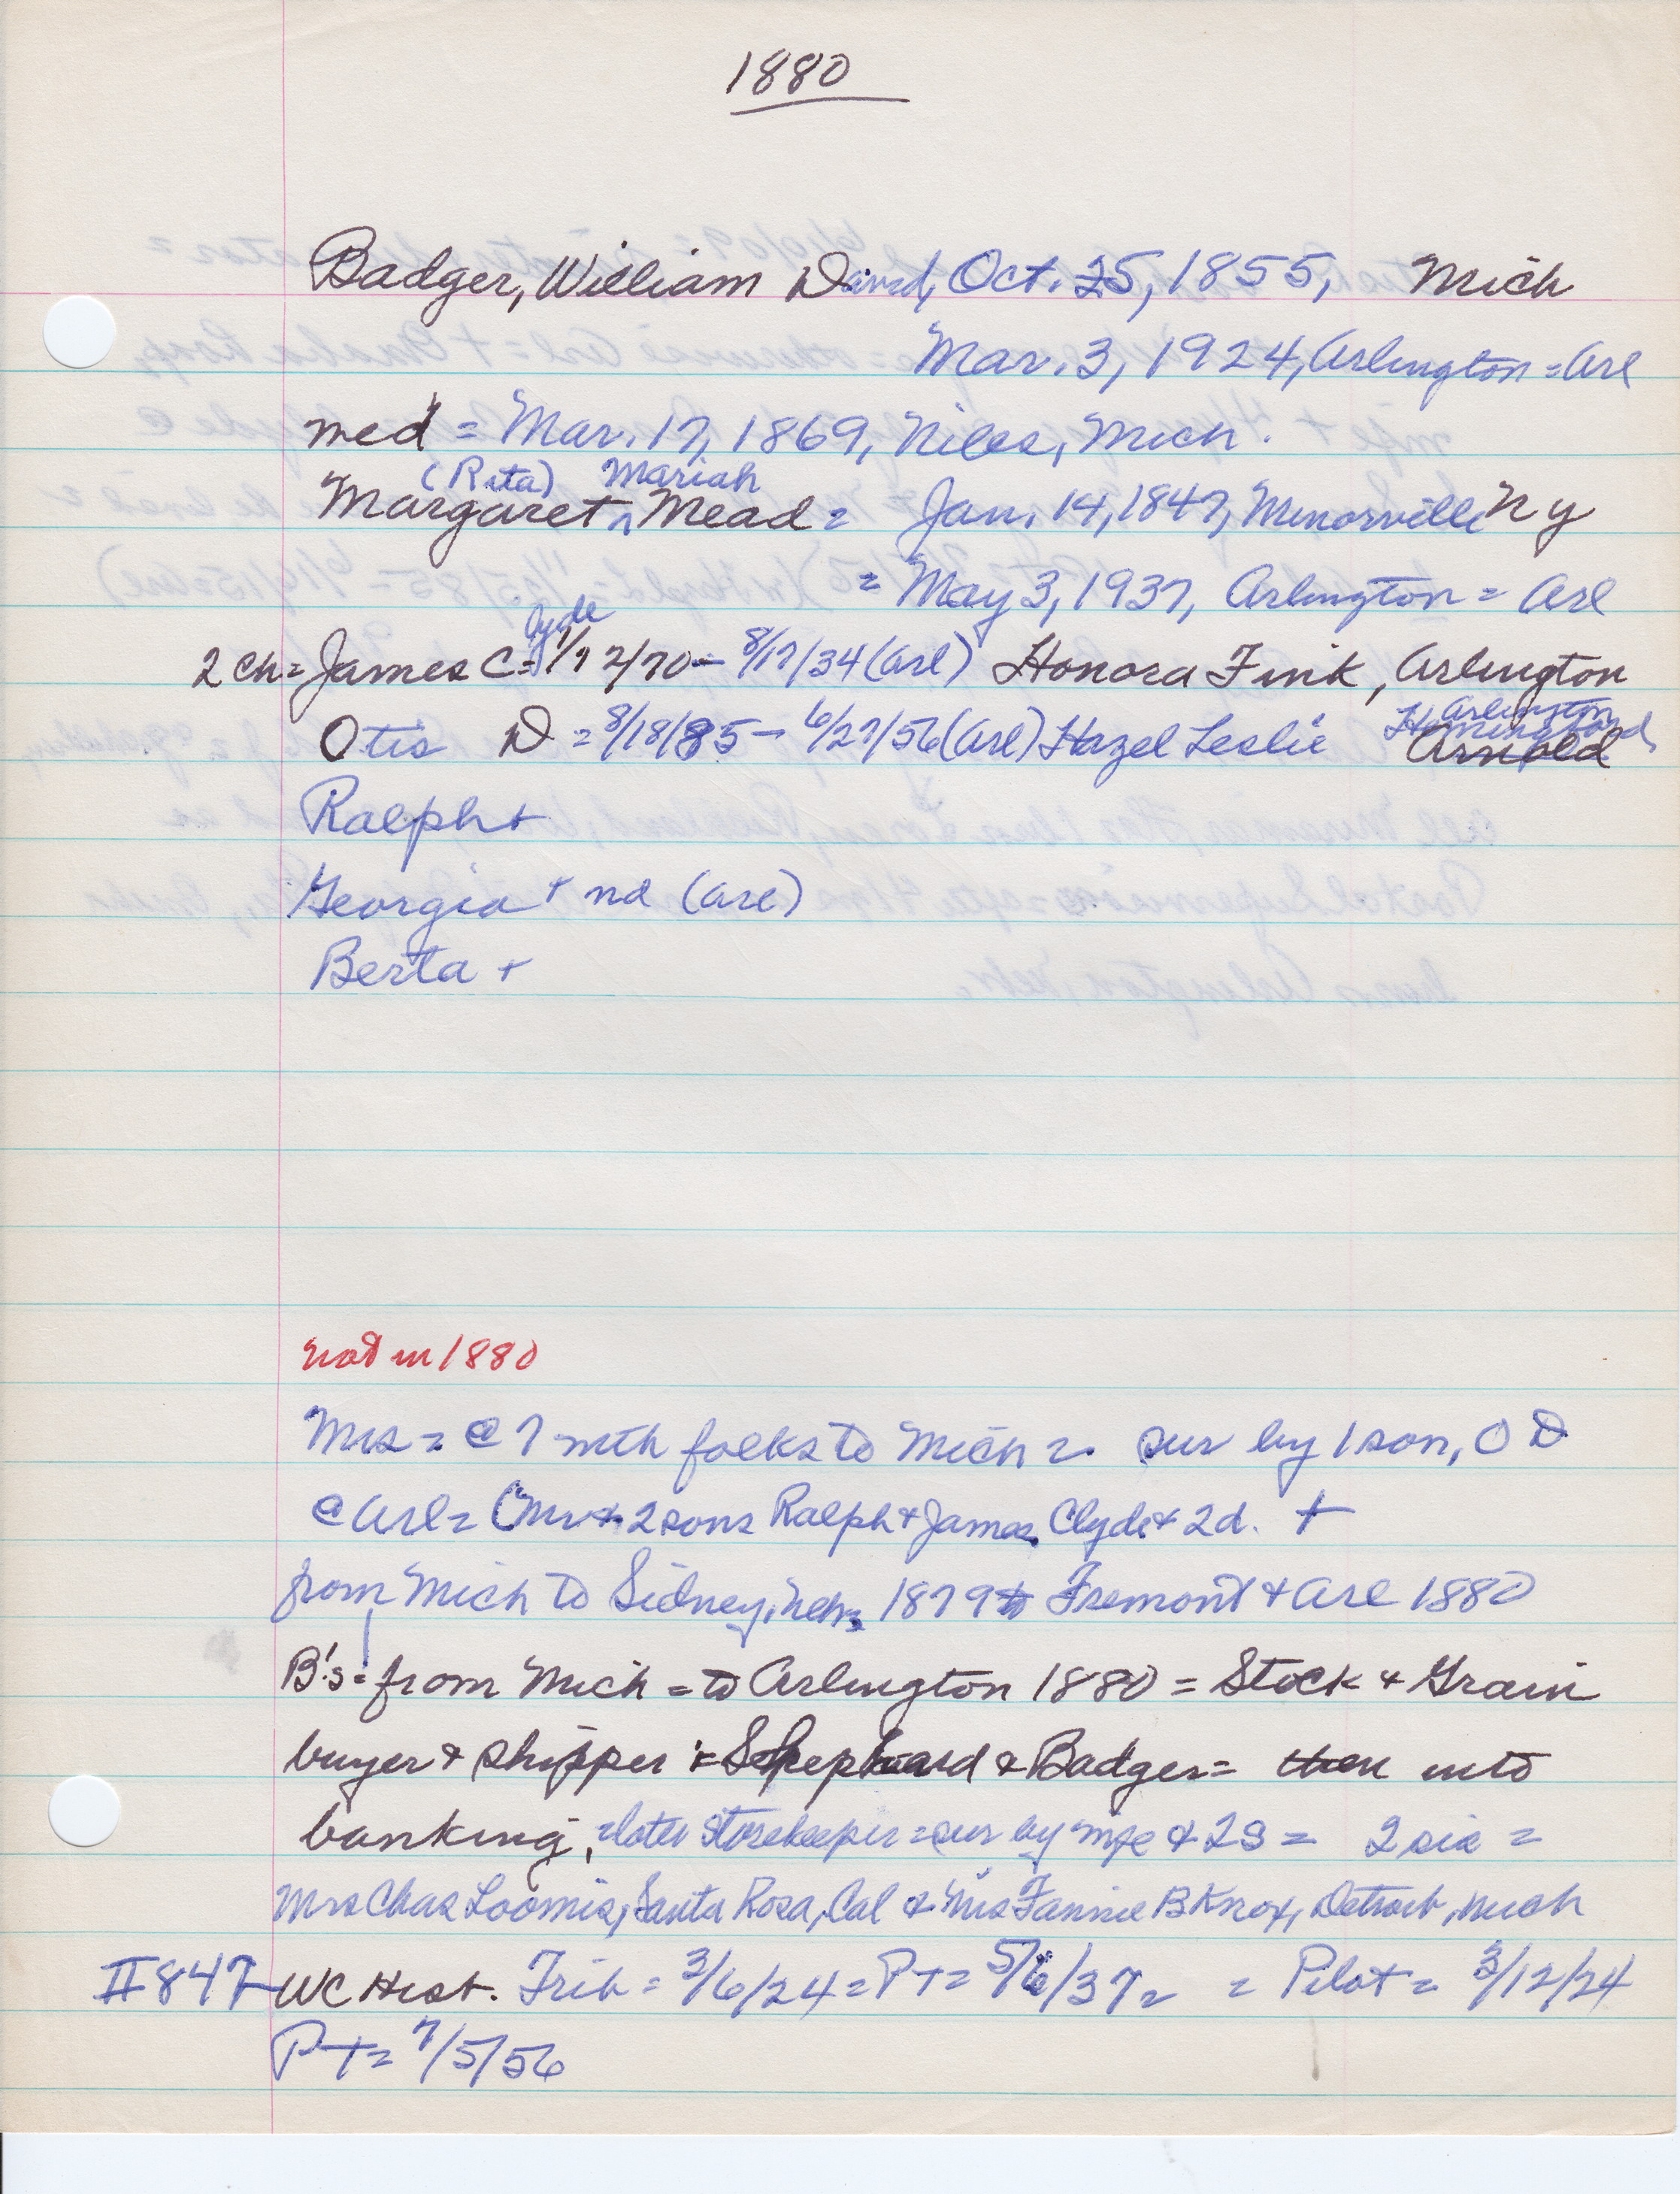 1880
Badger, William David, Oct. 25, 1855, Mich
Mar. 3, 1924, Arlington = Arl
med = Mar. 17, 1869, Niles, Mich.
(Rita) Mariah
Margaret ^ Mead = Jan. 14, 1847, Minorville N Y
= May 3, 1937, Arlington = Arl
Clyde
2 ch = James C = 1/12/70 - 8/17/34 (Arl) Honora Fink, Arlington
Arlington
Otis D = 8/18/85 - 6/27/56 (Arl) Hazel Leslie Arnold
Ralph +
Georgia + nd (Arl)
Berta +
not in 1880
Mrs = @ 7 with folks to Mich = sur by 1 son, O D
@ Arl = (Mr + 2 sons Ralph + James Clyde + 2 d. +
from Mich to Sidney, Neb = 1879 to Fremont + Arl 1880
B's = from Mich = to Arlington 1880 = Stock + Grain
buyer + shipper = Shephard & Badger = then into
banking, = later storekeeper = sur by wife & 2 S = 2 sis =
Mrs Chas Loomis, Santa Rosa, Cal & Mrs Fannie B Knox, Detroit, Mich
II 847 WC Hist. Trib = 3/6/24 = P T = 5/6/37 = = Pilot = 3/12/24
P T = 7/5/56